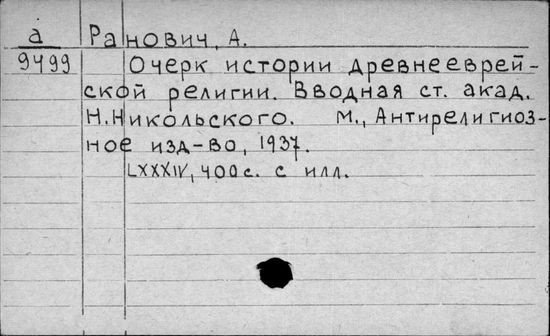 а Ранович, А.
9499 Очерк истории древнееврей-
ской религии. Вводная ст. акад.
Н.Никольского. М., Антирелигиоз-
ное изд-во, 1937.
LXXXIV, 400с. с илл.